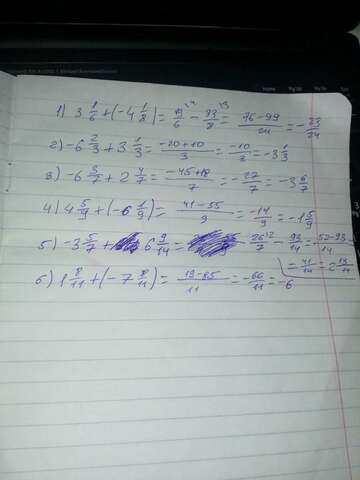 1) 3 1/6 + (-4 1/8) = 19/6 - 33/8 = 76-99/24 = - 23/24
2) -6 2/3 + 3 1/3 = -20+10/3 = -10/3 = -3 1/3
3) -6 3/7 + 2 4/7 = -45+18/7 = -27/7 = -3 6/7
4) 4 5/9 + (-6 1/9) = 41-55/9 = -14/9 = -1 5/9
5) -3 5/7 + 6 9/14 = 26/7 - 93/14 = 52-93/14
= 41/14 = 2 13/14
6) 1 8/11 + (-7 8/11) = 19-85/11 = -66/11 = -6